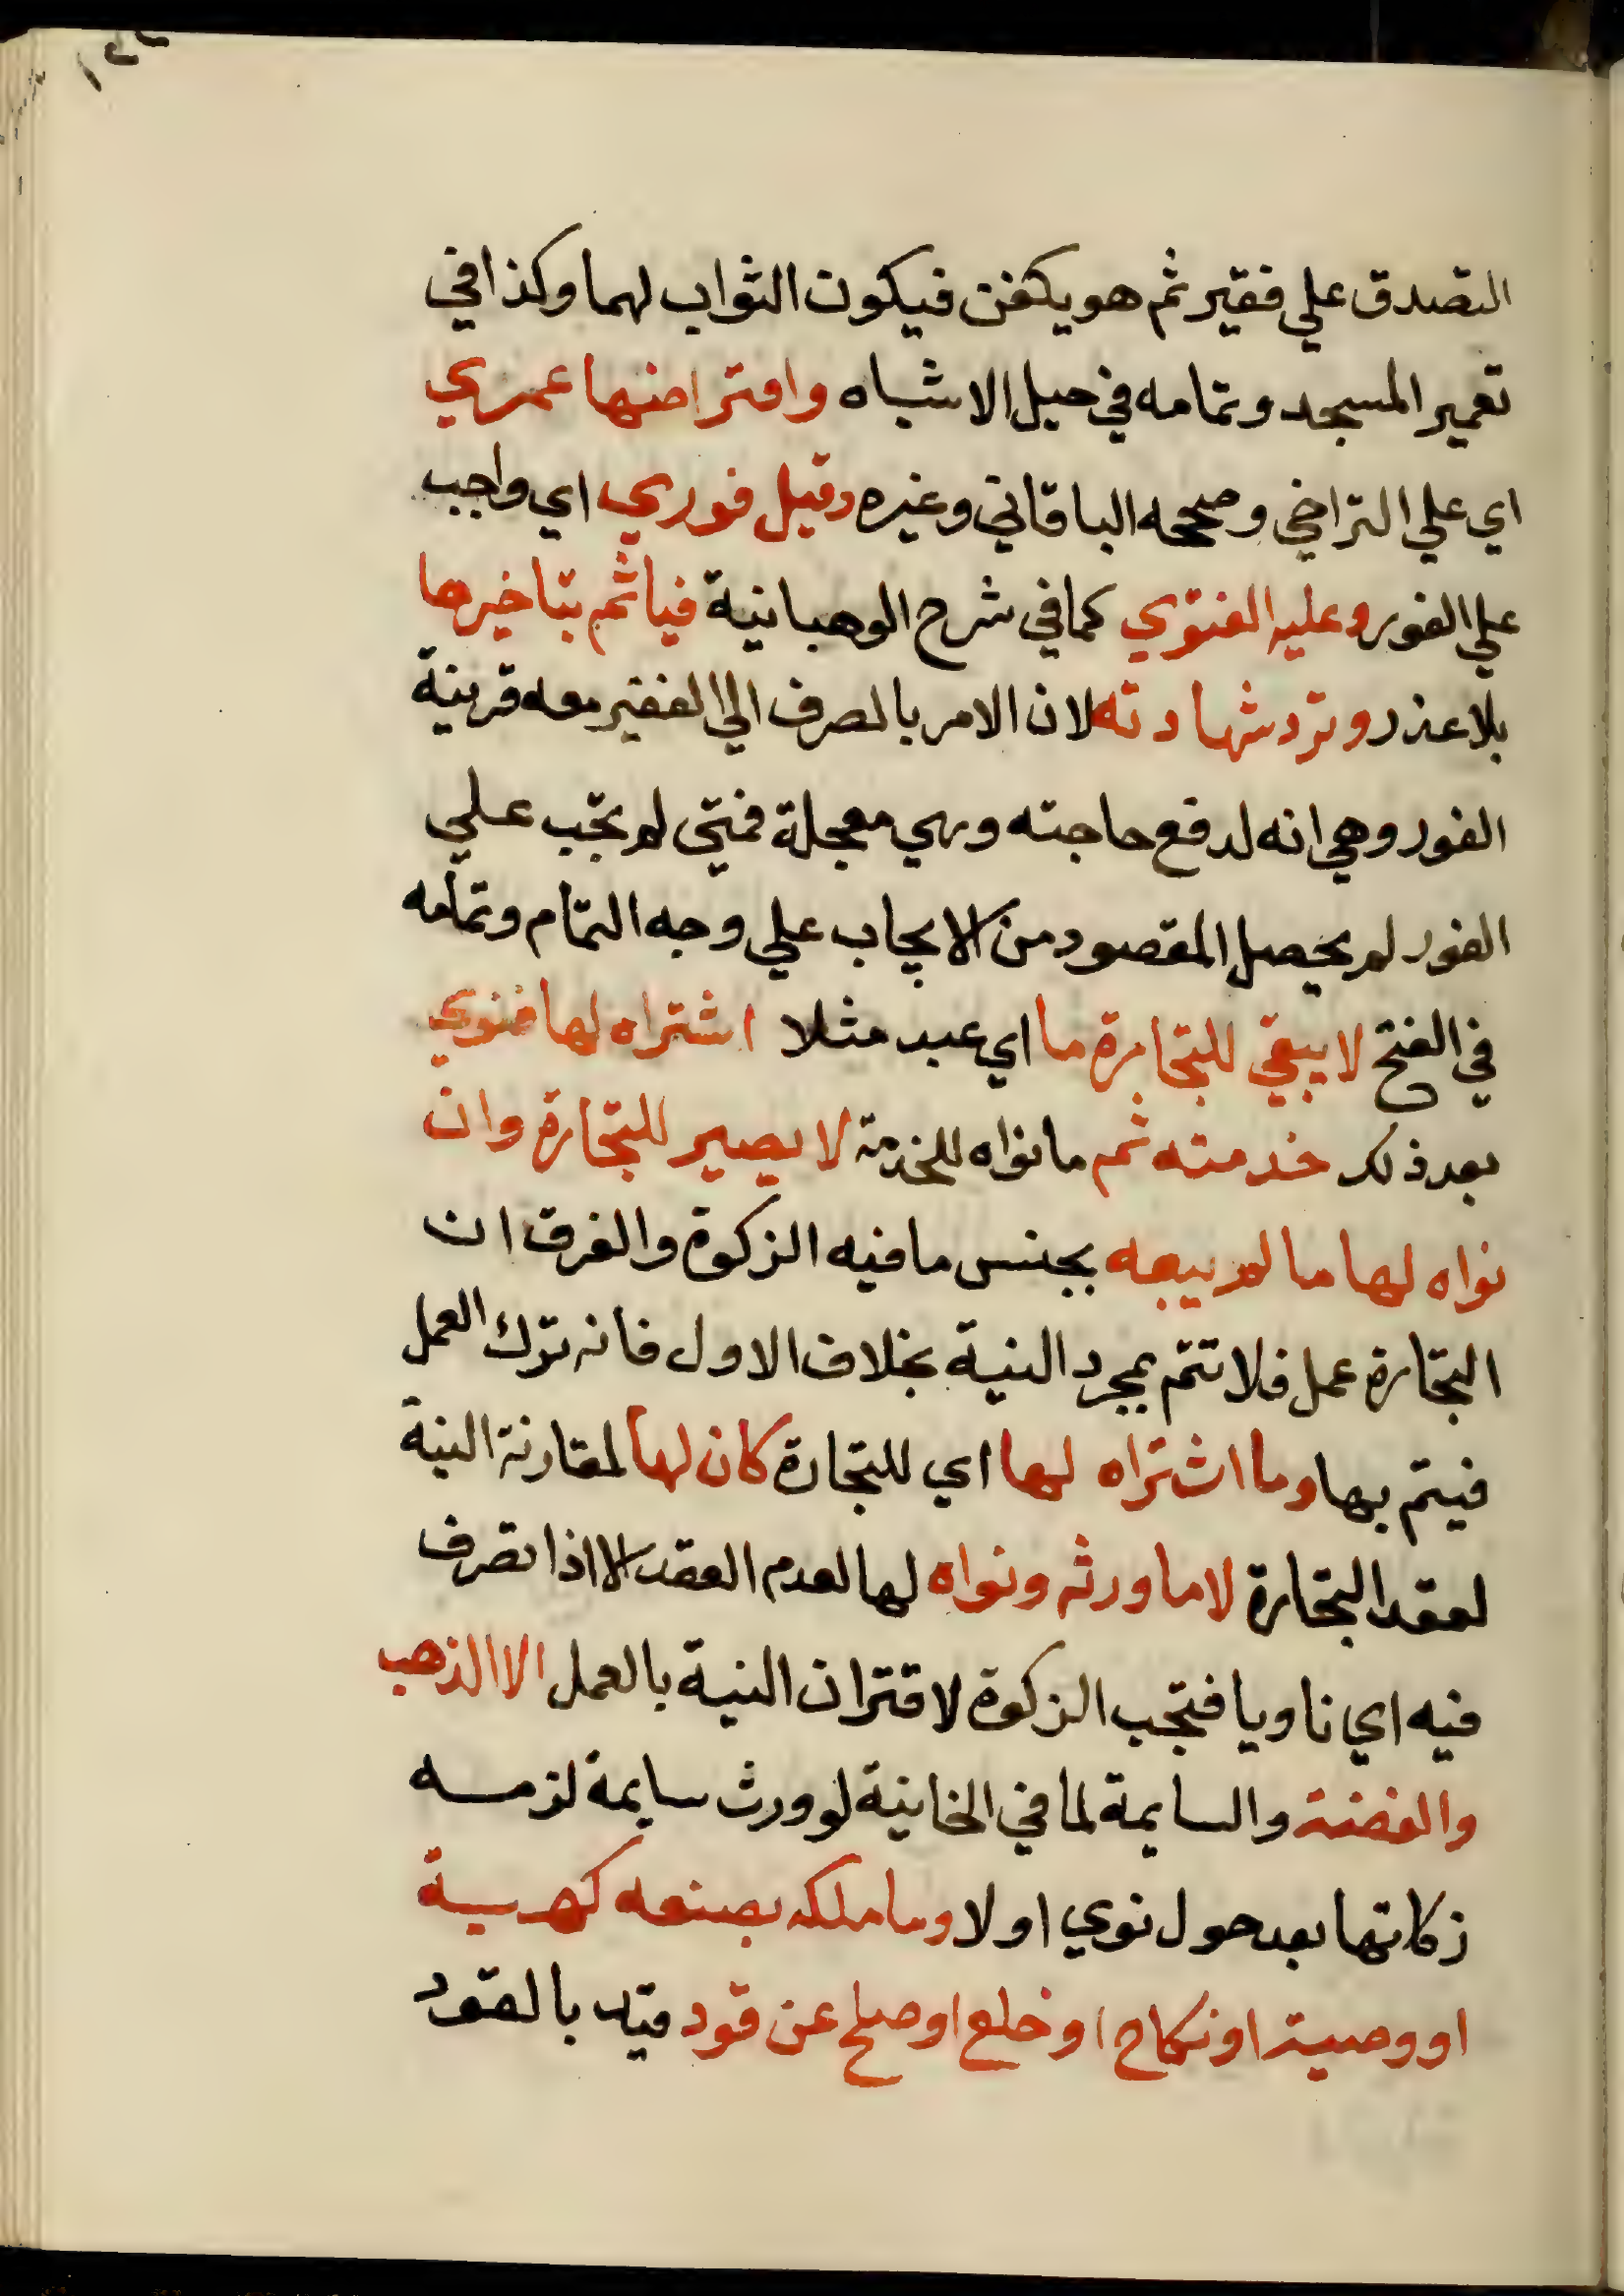 التصدق علي فقير ثم هو يكفن فيكون الثواب لهما وكذا في
تعمير المسجد وتمامه في حيل الاشباه وافتراضها عمري
اي علي التراخي وصححه الباقاني وغيره وقيل فوري اي واجب
علي الفور وعليه الفتوي كما في شرح الوهبانية فياثم بتاخيرها
بلا عذر وترد شهادته لان الامر بالصرف الي الفقير معه قرينة
الفور وهي انه لدفع حاجته وهي معجلة فمتي لم تجب علي
الفور لم يحصل المقصود من الايجاب علي وجه التمام وتمامه
في الفتح لا يبقي للتجارة ما اي عبد مثلا اشتراه لها فنوي
بعد ذلك خدمته ثم ما نواه للخدمة لا يصير للتجارة وان
نواه لها ما لم يبعه بجنس ما فيه الزكوة والفرق ان
التجارة عمل فلا تتم بمجرد النية بخلاف الاول فانه ترك العمل
فيتم بها وما اشتراه لها اي للتجارة كان لها لمقارنة النية
لعقد التجارة لا ما ورثه ونواه لها لعدم العقد الا اذا تصرف
فيه اي ناويا فتجب الزكوة لاقتران النية بالعمل الا الذهب
والفضة والسايمة لما في الخانية لو ورث سايمة لزمه
زكاتها بعد حول نوي او لا وما ملكه بصنعه كهبة
او وصية او نكاح او خلع او صلح عن قود قيد بالقود